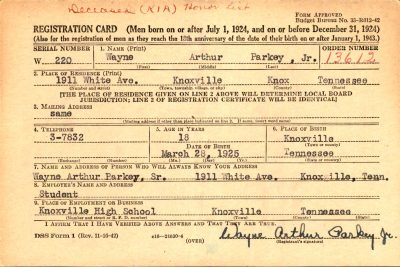 Deceased (KIA) Honor List
FORM APPROVED
Budget Bureau No. 33-R012-42
REGISTRATION CARD (Men born on or after July 1, 1924, and on or before December 31, 1924)
(Also for the registration of men as they reach the 18th anniversary of the date of their birth on or after January 1, 1943.)
SERIAL NUMBER 1. NAME (Print) ORDER NUMBER
W 220 Wayne Arthur Parkey, Jr. 13612
(First) (Middle) (Last)
2. PLACE OF RESIDENCE (Print)
1911 White Ave. Knoxville Knox Tennessee
(Number and street) (Town, township, village, or city) (County) (State)
[THE PLACE OF RESIDENCE GIVEN ON LINE 2 ABOVE WILL DETERMINE LOCAL BOARD
JURISDICTION; LINE 2 OF REGISTRATION CERTIFICATE WILL BE IDENTICAL]
3. MAILING ADDRESS
same
[Mailing address if other than place indicated on line 2. If same, insert word same]
4. TELEPHONE 5. AGE IN YEARS 6. PLACE OF BIRTH
3-7832 18 Knoxville
DATE OF BIRTH (Town or county)
March 28, 1925 Tennessee
(Exchange) (Number) (Mo.) (Day) (Yr.) (State or country)
7. NAME AND ADDRESS OF PERSON WHO WILL ALWAYS KNOW YOUR ADDRESS
Wayne Arthur Parkey, Sr. 1911 White Ave. Knoxville, Tenn.
8. EMPLOYER'S NAME AND ADDRESS
Student
9. PLACE OF EMPLOYMENT OR BUSINESS
Knoxville High School Knoxville Tennessee
(Number and street or R. F. D. number) (Town) (County) (State)
I AFFIRM THAT I HAVE VERIFIED ABOVE ANSWERS AND THAT THEY ARE TRUE.
DSS Form 1 (Rev. 11-16-42) (OVER) Wayne Arthur Parkey Jr.
(Registrant's signature)